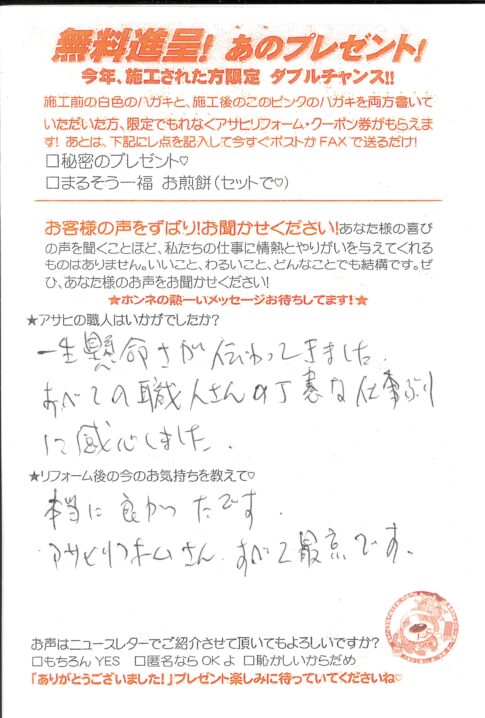 無料進呈! あのプレゼント!
今年、施工された方限定 ダブルチャンス!!
施工前の白色のハガキと、施工後のこのピンクのハガキを両方書いて
いただいた方、限定でもれなくアサヒリフォーム・クーポン券がもらえま
す! あとは、下記にレ点を記入して今すぐポストかFAXで送るだけ!
□秘密のプレゼント♡
□まるそう一福 お煎餅(セットで♡)
お客様の声をずばり!お聞かせください!あなた様の喜び
の声を聞くことほど、私たちの仕事に情熱とやりがいを与えてくれる
ものはありません。いいこと、わるいこと、どんなことでも結構です。ぜ
ひ、あなた様のお声をお聞かせください!
★ホンネの熱ーいメッセージお待ちしてます!★
★アサヒの職人はいかがでしたか?
一生懸命さが伝わってきました.
すべての職人さんの丁寧な仕事ぶり
に感心しました.
★リフォーム後の今のお気持ちを教えて♡
本当に良かったです.
アサヒリフォームさん.すべて最高です.
お声はニュースレターでご紹介させて頂いてもよろしいですか?
□もちろんYES □匿名ならOKよ □恥かしいからだめ
「ありがとうございました!」プレゼント楽しみに待っていてくださいね♡